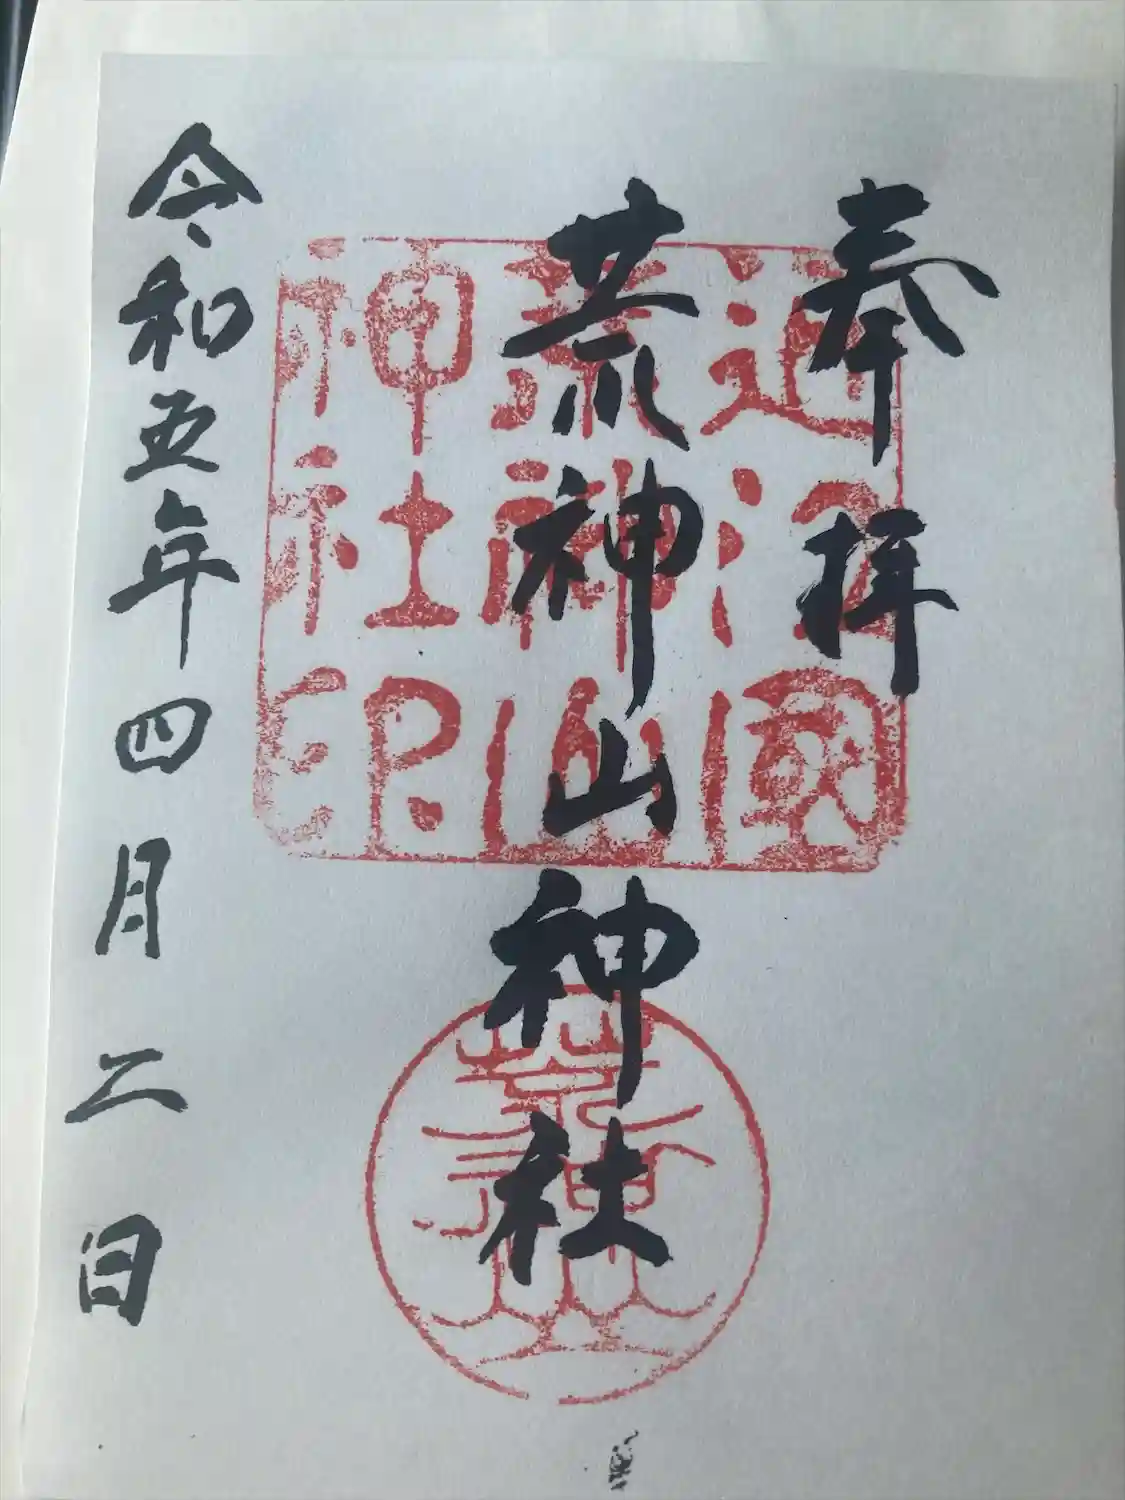 奉拝
荒神山神社
令和五年四月二日
近江国
荒神山
神社印